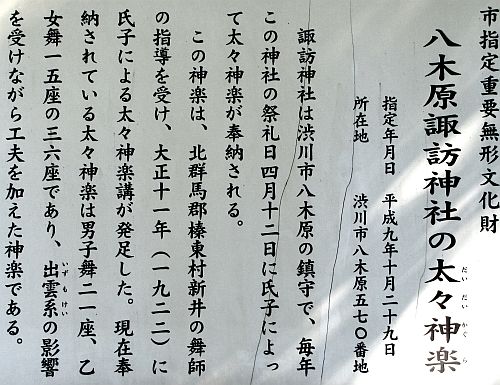 市指定重要無形文化財
八木原諏訪神社の太々神楽
だいだいかぐら
指定年月日　平成九年十月二十九日
所在地　渋川市八木原五七〇番地
諏訪神社は渋川市八木原の鎮守で、毎年
この神社の祭礼日四月十二日に氏子によっ
て太々神楽が奉納される。
この神楽は、北群馬郡榛東村新井の舞師
の指導を受け、大正十一年（一九二二）に
氏子による太々神楽講が発足した。現在奉
納されている太々神楽は男子舞二一座、乙
女舞一五座の三六座であり、出雲系の影響
いずもけい
を受けながら工夫を加えた神楽である。